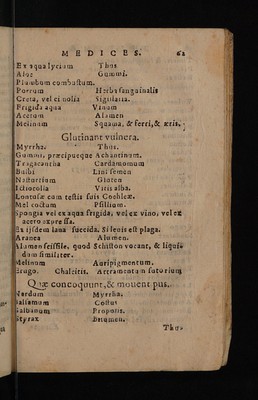 MEDICES. 62
Ex aqua lycium Thus
Aloe Gummi.
Plumbum combustum.
Porrum Herba sanguinalis
Creta, vel cimolia Sigillata.
Frigida aqua Vinum
Acetum Alumen
Melinum Squama, & ferri, & æris.
Glutinant vulnera.
Myrrha. Thus.
Gummi, præcipueque Achantinum.
Tragacantha Cardamomum
Bulbi Lini semen
Nasturtium Gluten
Ictiocolla Vitis alba.
Contusæ cum testis suis Cochleæ.
Mel coctum Psillium.
Spongia vel ex aqua frigida, vel ex vino, vel ex
aceto expressa.
Ex ijsdem lana succida. Si leuis est plaga.
Aranea Alumen.
Alumen scissile, quod Schiston vocant, & liqui-
dum similiter.
Melinum Auripigmentum.
Erugo. Chalcitis. Atramentum sutorium
Quæ concoquunt, & mouent pus.
Nardum Myrrha.
Balsamum Costus
Galbanum Propolis.
Styrax Bitumen.
Thus